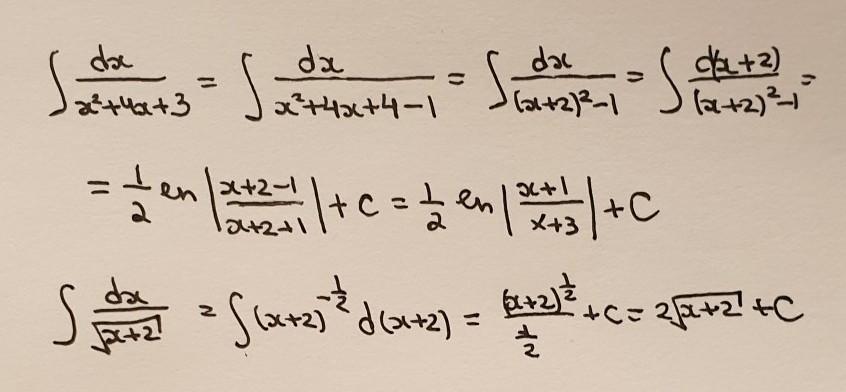 ∫ dx/(x²+4x+3) = ∫ dx/(x²+4x+4-1) = ∫ dx/((x+2)²-1) = ∫ d(x+2)/((x+2)²-1) =
= 1/2 ln |(x+2-1)/(x+2+1)| + C = 1/2 ln |(x+1)/(x+3)| + C
∫ dx/√(x+2) = ∫ (x+2)^(-1/2) d(x+2) = (x+2)^(1/2)/(1/2) + C = 2√(x+2) + C